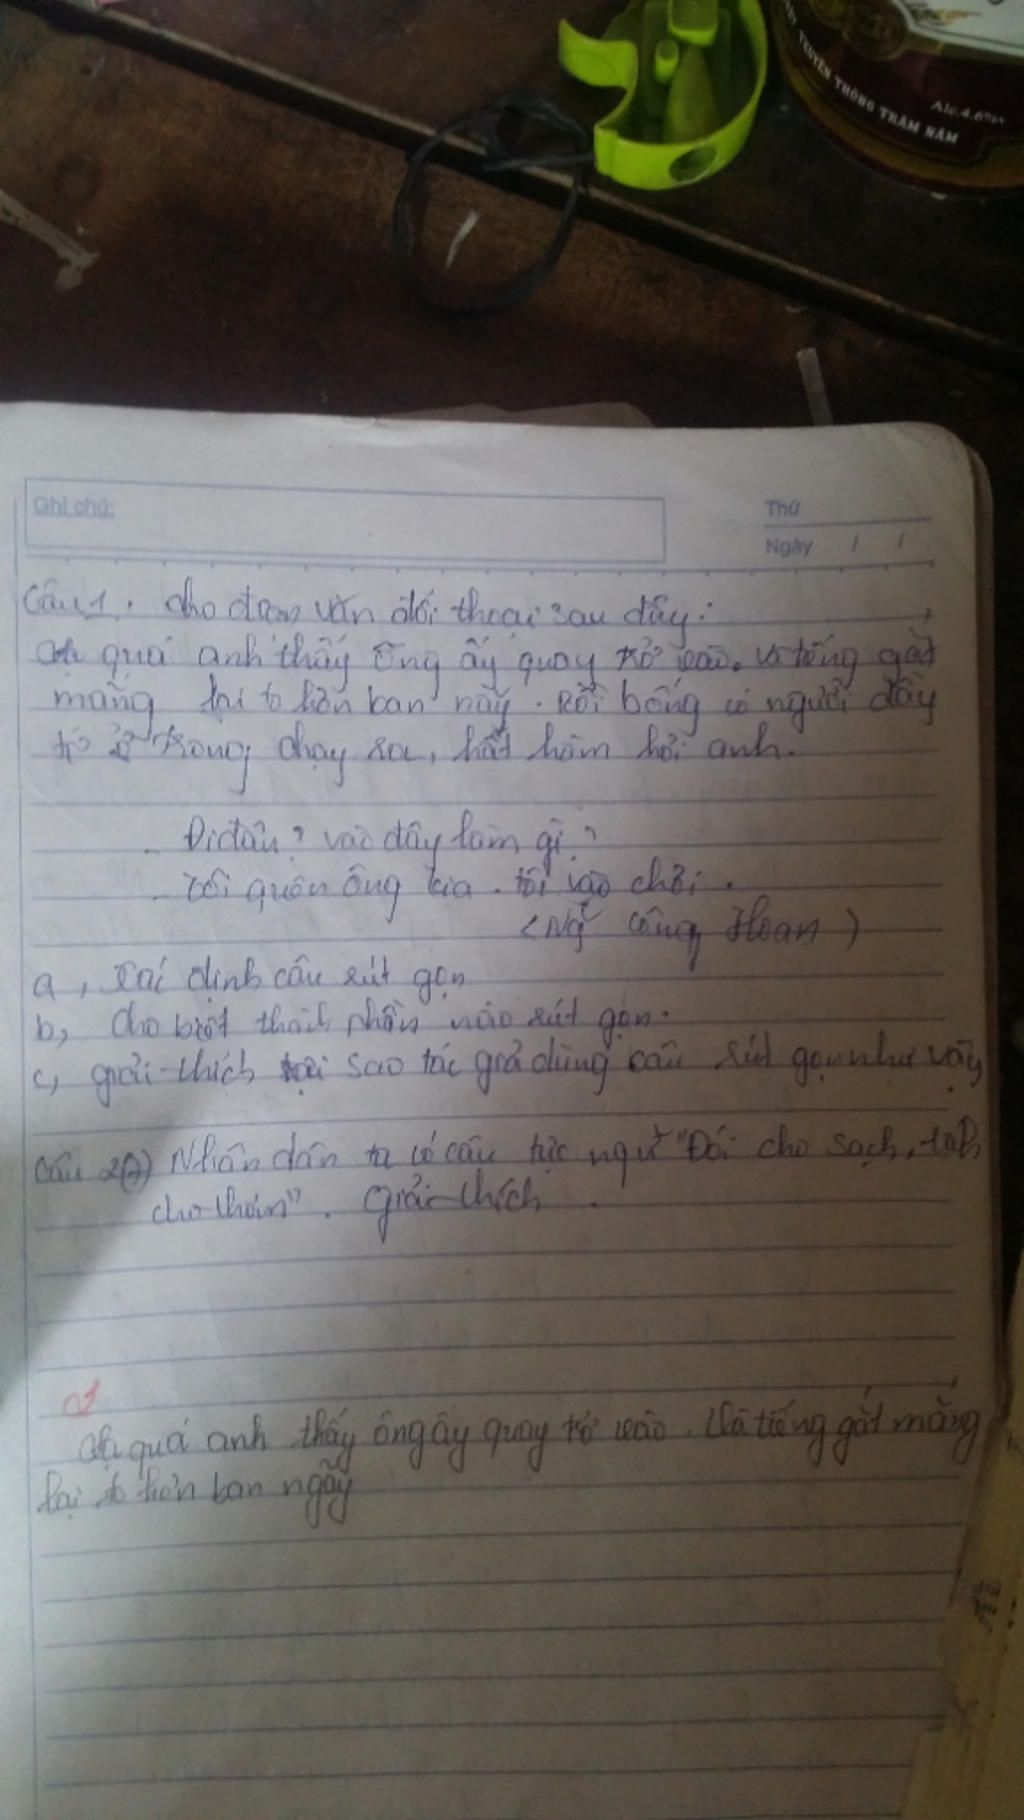 TRUYỀN THỐNG TRĂM NĂM
Alc.4.6%
Ghi chú:
Thứ
Ngày / /
Câu 1. cho đoạn văn đối thoại sau đây:
quá anh thấy ông ấy quay trở vào. và tiếng gắt
mắng lại to hơn ban nãy. Rồi bỗng có người đầy
tớ ở trong chạy ra, hất hàm hỏi anh.
- Đi đâu? vào đây làm gì?
- tôi quên ông kia. tôi vào chơi.
(Ng~ công Hoan)
a, xác định câu rút gọn
b, cho biết thành phần nào rút gọn.
c, giải thích tại sao tác giả dùng câu rút gọn như vậy
Câu 2 Nhân dân ta có câu tục ngữ "Đói cho sạch, rách
cho thơm". Giải thích.
quá anh thấy ông ấy quay trở vào. Và tiếng gắt mắng
lại to hơn ban ngãy